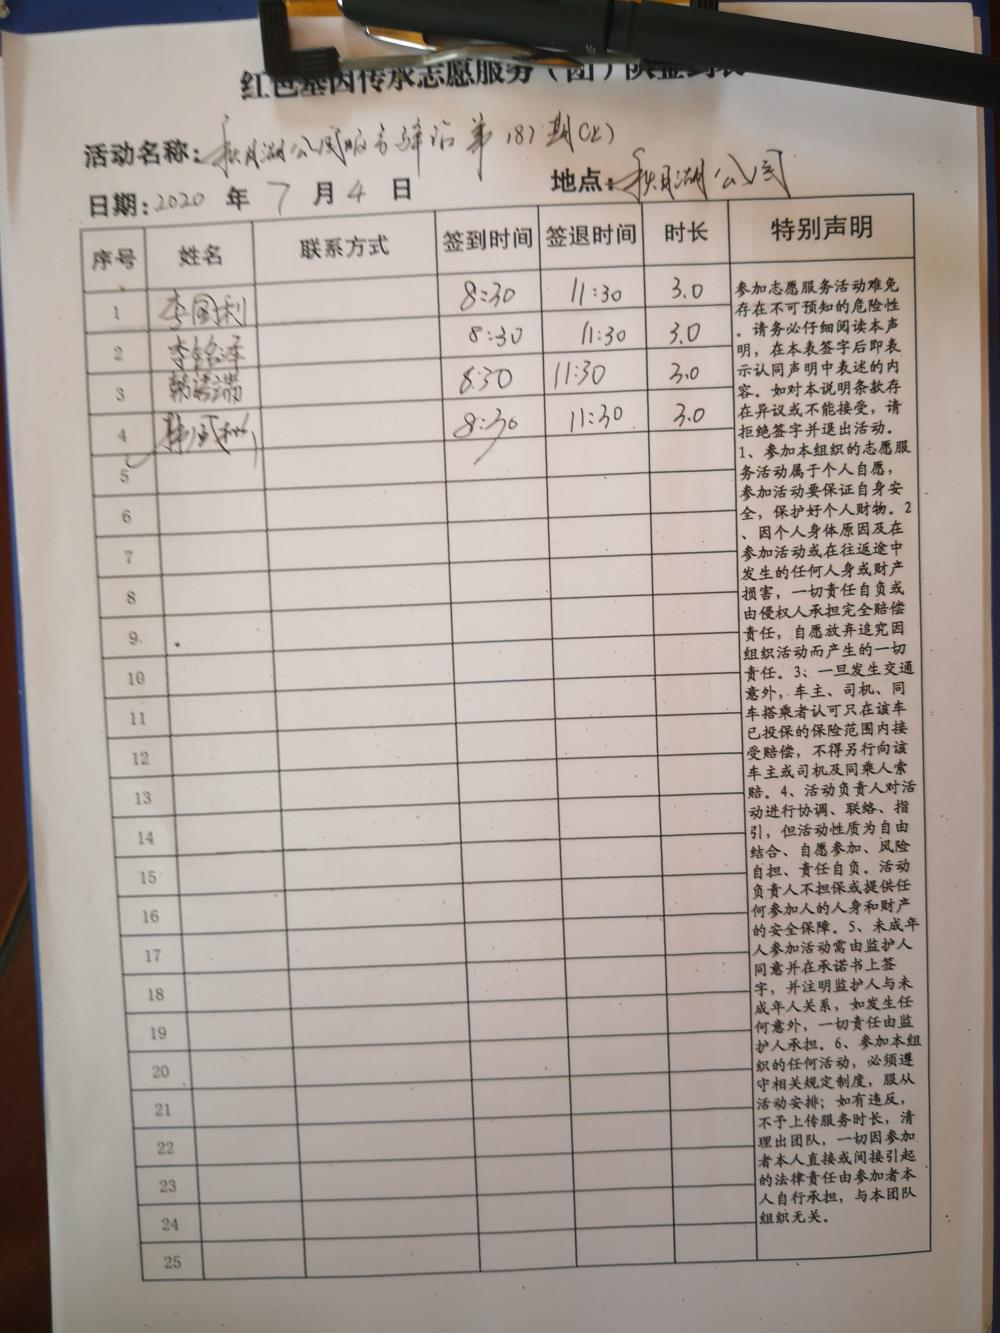 红色基因传承志愿服务（团）队签到表
活动名称：秋月湖公园服务驿站第187期(上)
日期：2020 年 7 月 4 日 地点：秋月湖公园
序号 姓名 联系方式 签到时间 签退时间 时长 特别声明
1 李国利 8:30 11:30 3.0
2 李铭泽 8:30 11:30 3.0
3 韩 8:30 11:30 3.0
4 韩 8:30 11:30 3.0
5
6
7
8
9
10
11
12
13
14
15
16
17
18
19
20
21
22
23
24
25
参加志愿服务活动难免
存在不可预知的危险性
。请务必仔细阅读本声
明，在本表签字后即表
示认同声明中表述的内
容。如对本说明条款存
在异议或不能接受，请
拒绝签字并退出活动。
1、参加本组织的志愿服
务活动属于个人自愿，
参加活动要保证自身安
全，保护好个人财物。2
、因个人身体原因及在
参加活动或在往返途中
发生的任何人身或财产
损害，一切责任自负或
由侵权人承担完全赔偿
责任，自愿放弃追究因
组织活动而产生的一切
责任。3；一旦发生交通
意外，车主、司机、同
车搭乘者认可只在该车
已投保的保险范围内接
受赔偿，不得另行向该
车主或司机及同乘人索
赔。4、活动负责人对活
动进行协调、联络、指
引，但活动性质为自由
结合、自愿参加、风险
自担、责任自负。活动
负责人不担保或提供任
何参加人的人身和财产
的安全保障。5、未成年
人参加活动需由监护人
同意并在承诺书上签
字，并注明监护人与未
成年人关系，如发生任
何意外，一切责任由监
护人承担。6、参加本组
织的任何活动，必须遵
守相关规定制度，服从
活动安排；如有违反，
不予上传服务时长，清
理出团队，一切因参加
者本人直接或间接引起
的法律责任由参加者本
人自行承担，与本团队
组织无关。